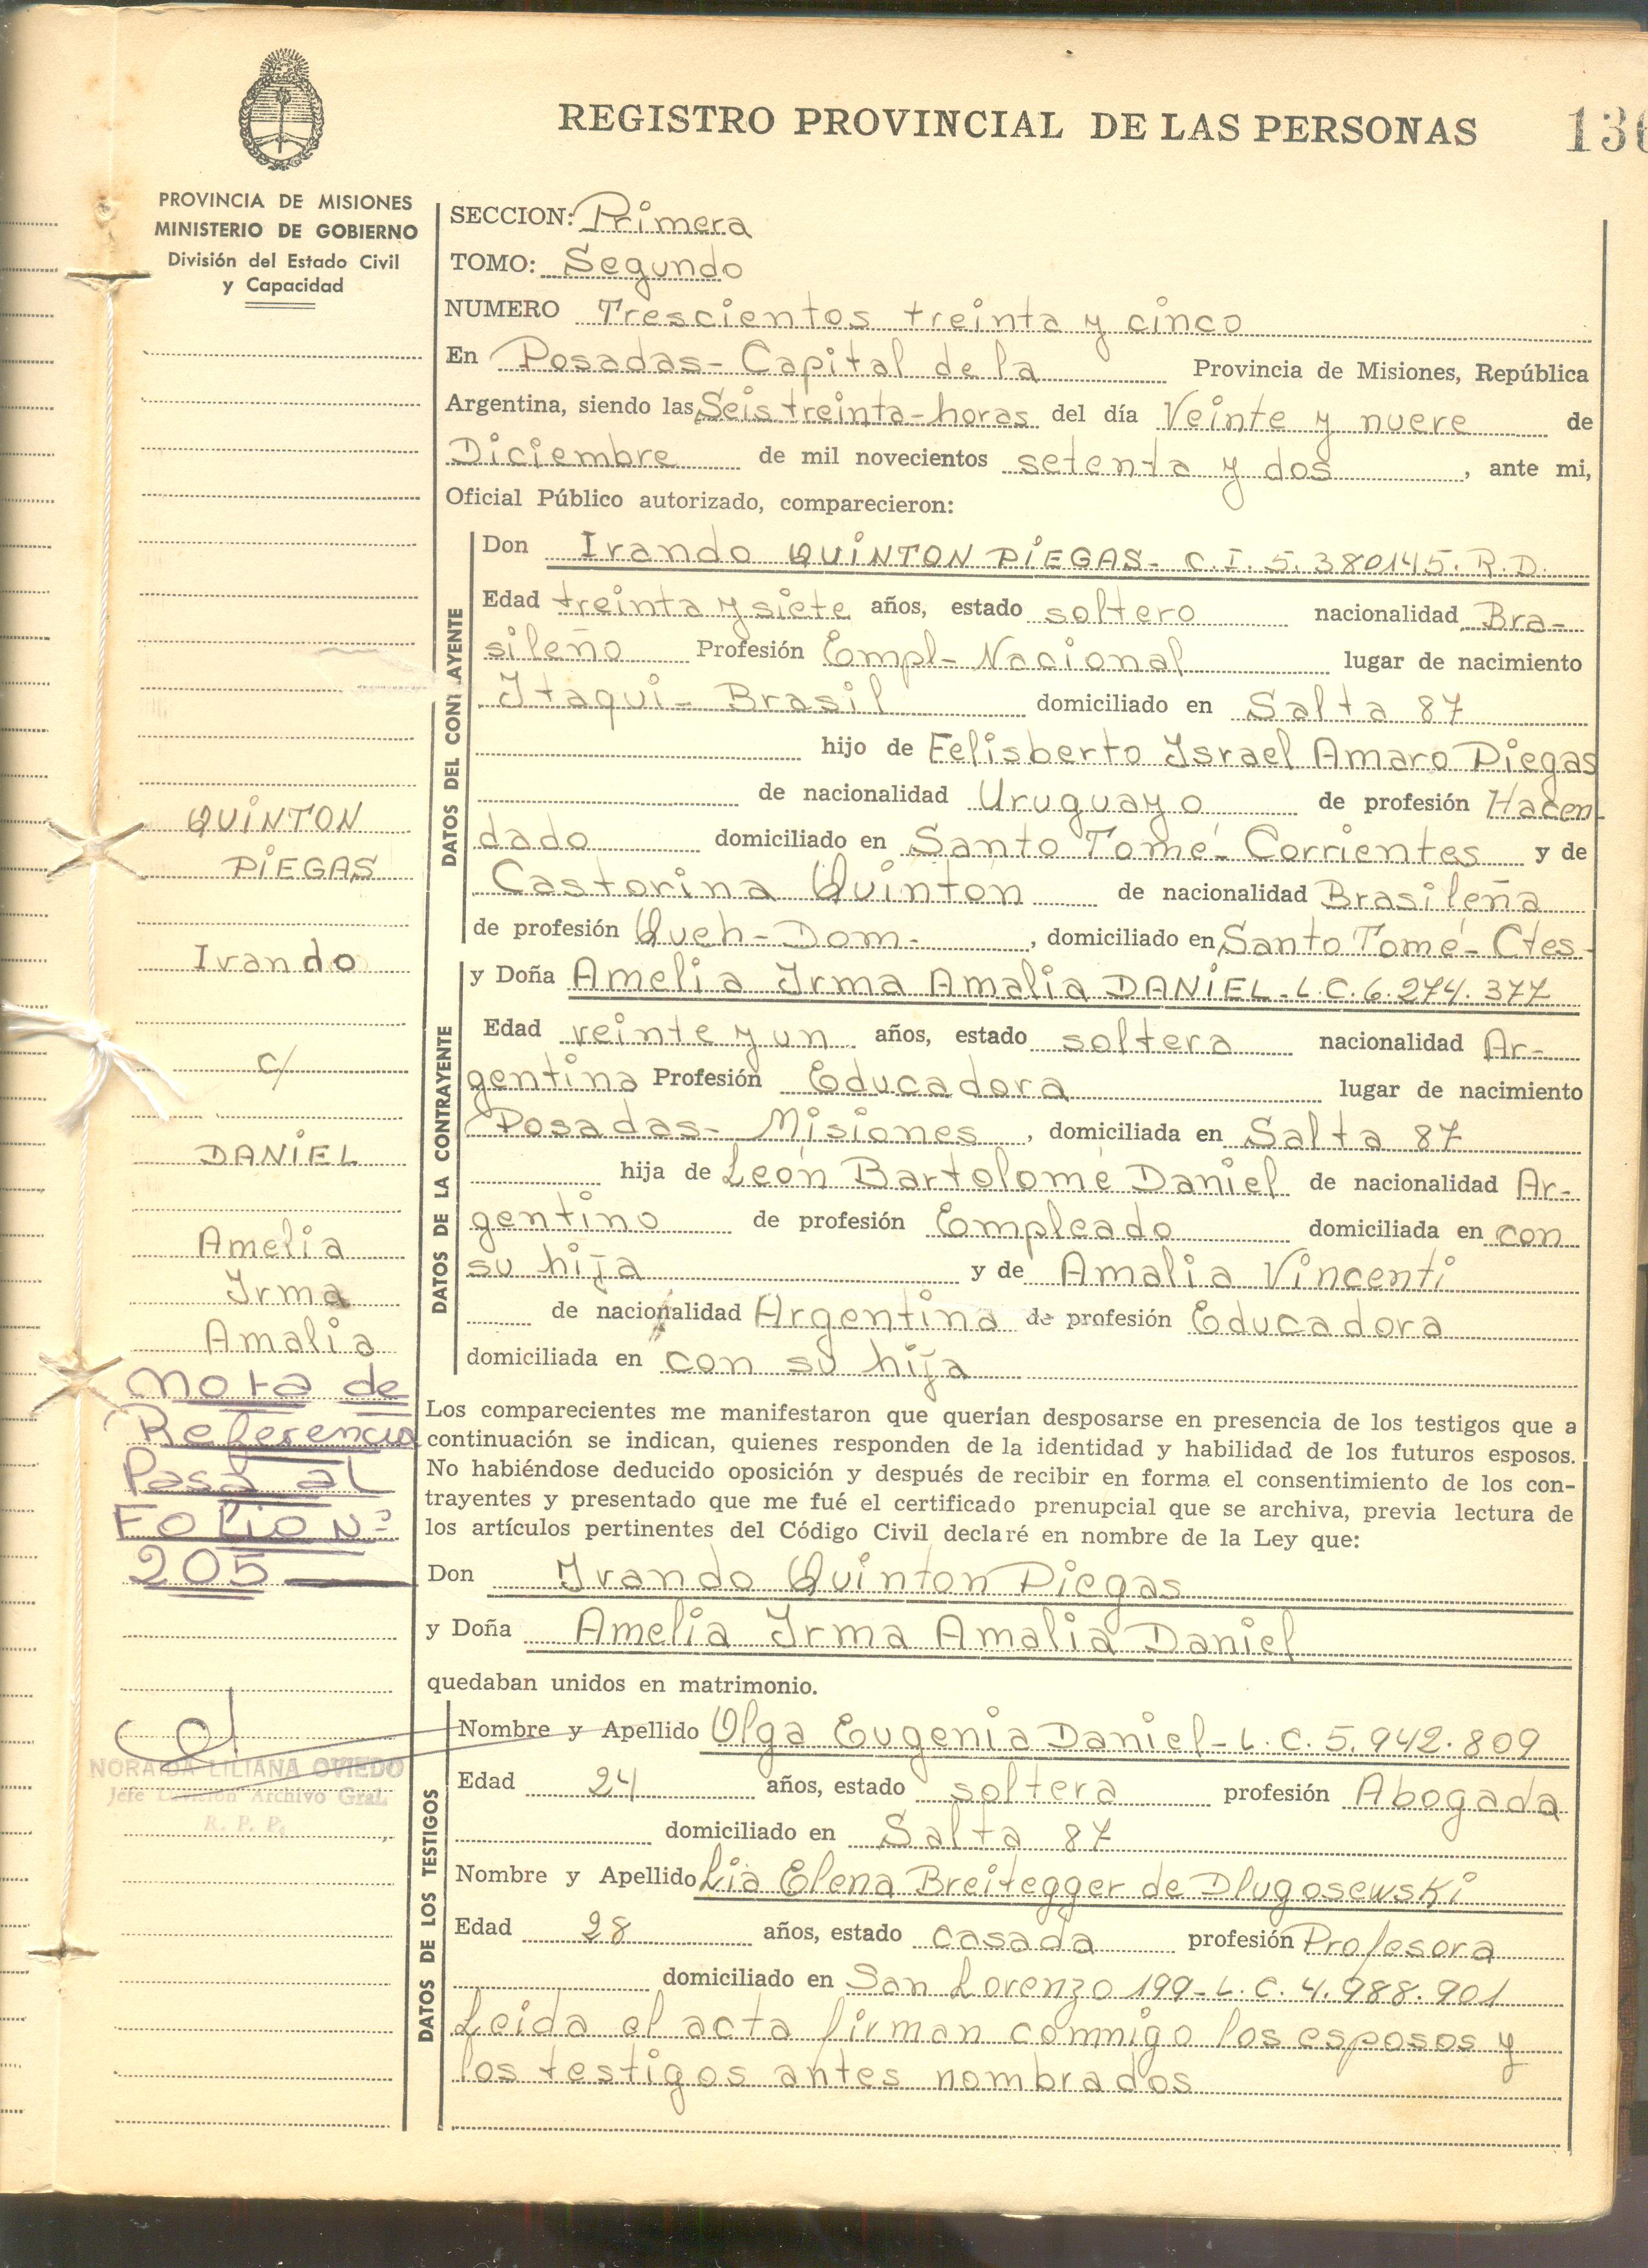 REGISTRO PROVINCIAL DE LAS PERSONAS
PROVINCIA DE MISIONES
MINISTERIO DE GOBIERNO
División del Estado Civil
y Capacidad
SECCION: Primera
TOMO: Segundo
NUMERO Trescientos treinta y cinco
En Posadas - Capital de la Provincia de Misiones, República
Argentina, siendo las Seis treinta - horas del día Veinte y nueve de
Diciembre de mil novecientos setenta y dos, ante mi,
Oficial Público autorizado, comparecieron:
DATOS DEL CONTRAYENTE
Don Ivando QUINTON PIEGAS - C.I. 5.380145. R.D.
Edad treinta y siete años, estado soltero nacionalidad Bra-
sileño Profesión Empl - Nacional lugar de nacimiento
Itaqui - Brasil domiciliado en Salta 87
hijo de Felisberto Israel Amaro Piegas
de nacionalidad Uruguayo de profesión Hacen-
dado domiciliado en Santo Tomé - Corrientes y de
Castorina Quinton de nacionalidad Brasileña
de profesión Queh - Dom -, domiciliado en Santo Tomé - Ctes -
DATOS DE LA CONTRAYENTE
y Doña Amelia Irma Amalia DANIEL - L.C. 6.274.377
Edad veinte y un años, estado soltera nacionalidad Ar-
gentina Profesión Educadora lugar de nacimiento
Posadas - Misiones, domiciliada en Salta 87
hija de León Bartolomé Daniel de nacionalidad Ar-
gentino de profesión Empleado domiciliada en con
su hija y de Amalia Vincenti
de nacionalidad Argentina de profesión Educadora
domiciliada en con su hija
Los comparecientes me manifestaron que querían desposarse en presencia de los testigos que a
continuación se indican, quienes responden de la identidad y habilidad de los futuros esposos.
No habiéndose deducido oposición y después de recibir en forma el consentimiento de los con-
trayentes y presentado que me fué el certificado prenupcial que se archiva, previa lectura de
los artículos pertinentes del Código Civil declaré en nombre de la Ley que:
Don Ivando Quinton Piegas
y Doña Amelia Irma Amalia Daniel
quedaban unidos en matrimonio.
DATOS DE LOS TESTIGOS
Nombre y Apellido Olga Eugenia Daniel - L.C. 5.942.809
Edad 24 años, estado soltera profesión Abogada
domiciliado en Salta 87
Nombre y Apellido Lia Elena Breitegger de Dlugosewski
Edad 28 años, estado casada profesión Profesora
domiciliado en San Lorenzo 199 - L.C. 4.988.901
Leida el acta firman commigo los esposos y
los testigos antes nombrados
QUINTON
PIEGAS
Ivando
c/
DANIEL
Amelia
Irma
Amalia
Nota de
Referencia
Pasa al
Folio Nº
205
NORAIDA LILIANA OVIEDO
Jefe División Archivo Gral.
R. P. P.